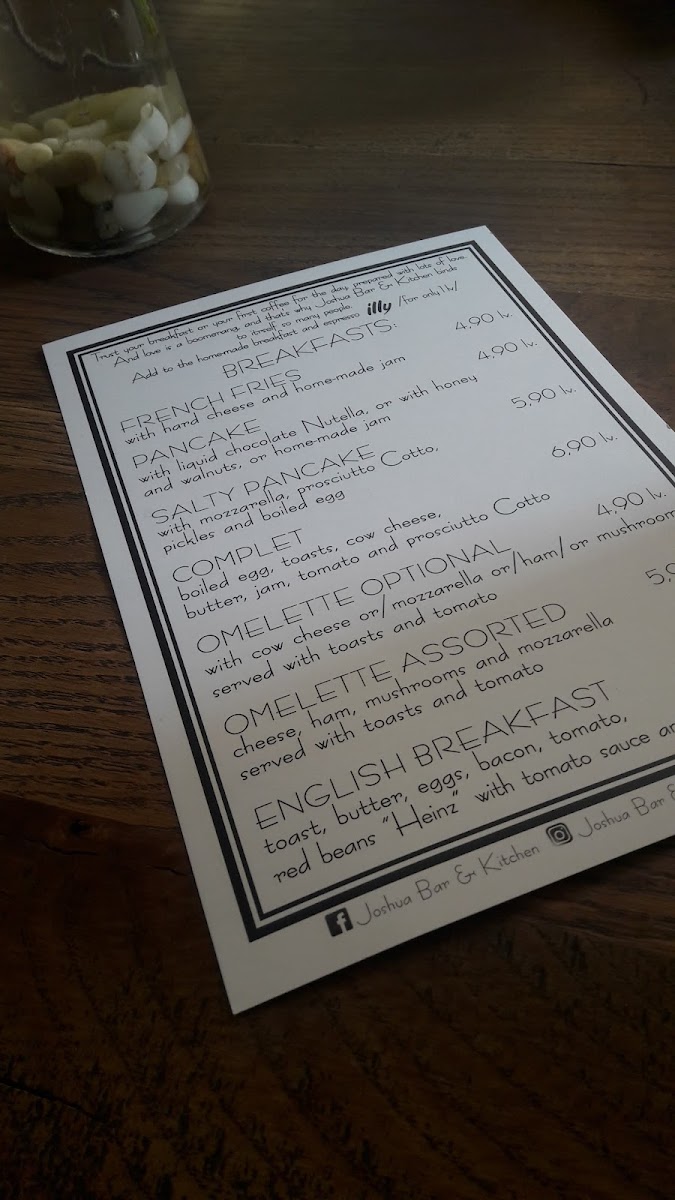 Trust your breakfast or your first coffee for the day, prepared with lots of love.
And love is a boomerang, and that's why Joshua Bar & Kitchen binds
to itself so many people.
Add to the homemade breakfast and espresso illy /for only 1 lv/
BREAKFASTS:
FRENCH FRIES 4,90 lv.
with hard cheese and home-made jam
PANCAKE 4,90 lv.
with liquid chocolate Nutella, or with honey
and walnuts, or home-made jam
SALTY PANCAKE 5,90 lv.
with mozzarella, prosciutto Cotto,
pickles and boiled egg
COMPLET 6,90 lv.
boiled egg, toasts, cow cheese,
butter, jam, tomato and prosciutto Cotto
OMELETTE OPTIONAL 4,90 lv.
with cow cheese or/mozzarella or/ham/or mushroom
served with toasts and tomato
OMELETTE ASSORTED
cheese, ham, mushrooms and mozzarella
served with toasts and tomato
ENGLISH BREAKFAST
toast, butter, eggs, bacon, tomato,
red beans "Heinz" with tomato sauce
Joshua Bar & Kitchen Joshua Bar